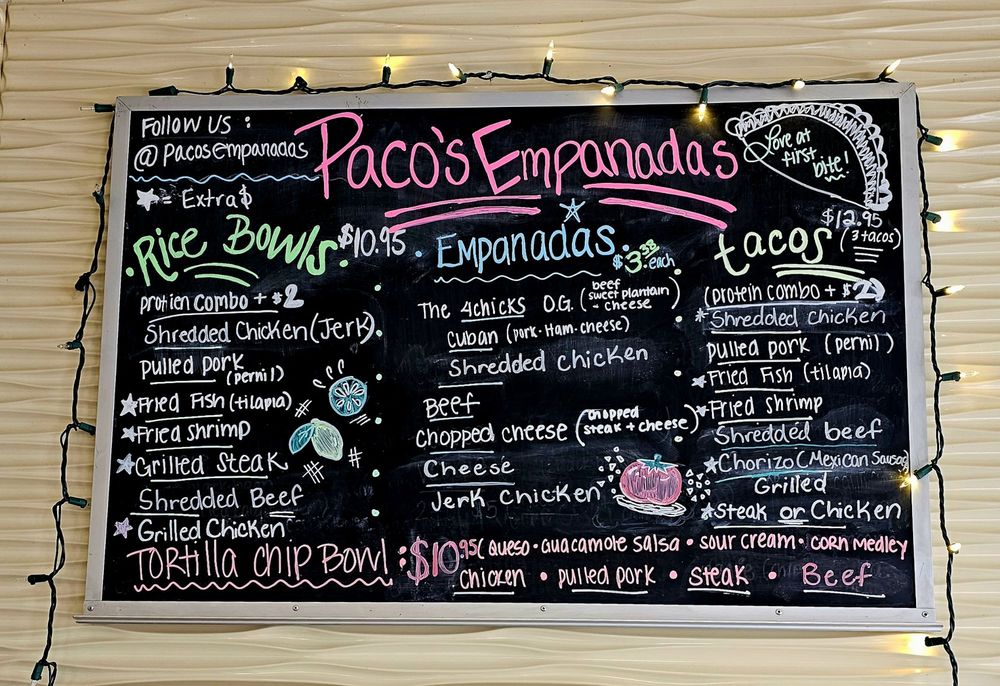 Follow us :
@Pacosempanadas
Paco's Empanadas
Love at
first
bite!
Extra$
Rice Bowls $10.95
protien combo + $2
Shredded Chicken (Jerk)
pulled pork
(pernil)
Fried Fish (tilapia)
Fried shrimp
Grilled Steak
Shredded Beef
Grilled Chicken
Empanadas
each
The 4chicks O.G. (beef
sweet plantain
+ cheese)
Cuban (pork·Ham·cheese)
Shredded Chicken
Beef
Chopped cheese (chopped
steak + cheese)
Cheese
Jerk Chicken
$12.95
tacos (3 tacos)
(protein combo + $2)
Shredded Chicken
pulled pork (pernil)
Fried Fish (tilapia)
Fried Shrimp
Shredded beef
Chorizo (Mexican Sausag
Grilled
Steak or Chicken
Tortilla chip Bowl : $10.95 (Queso · Guacamole Salsa · sour cream · corn medley
chicken · pulled pork · steak · Beef